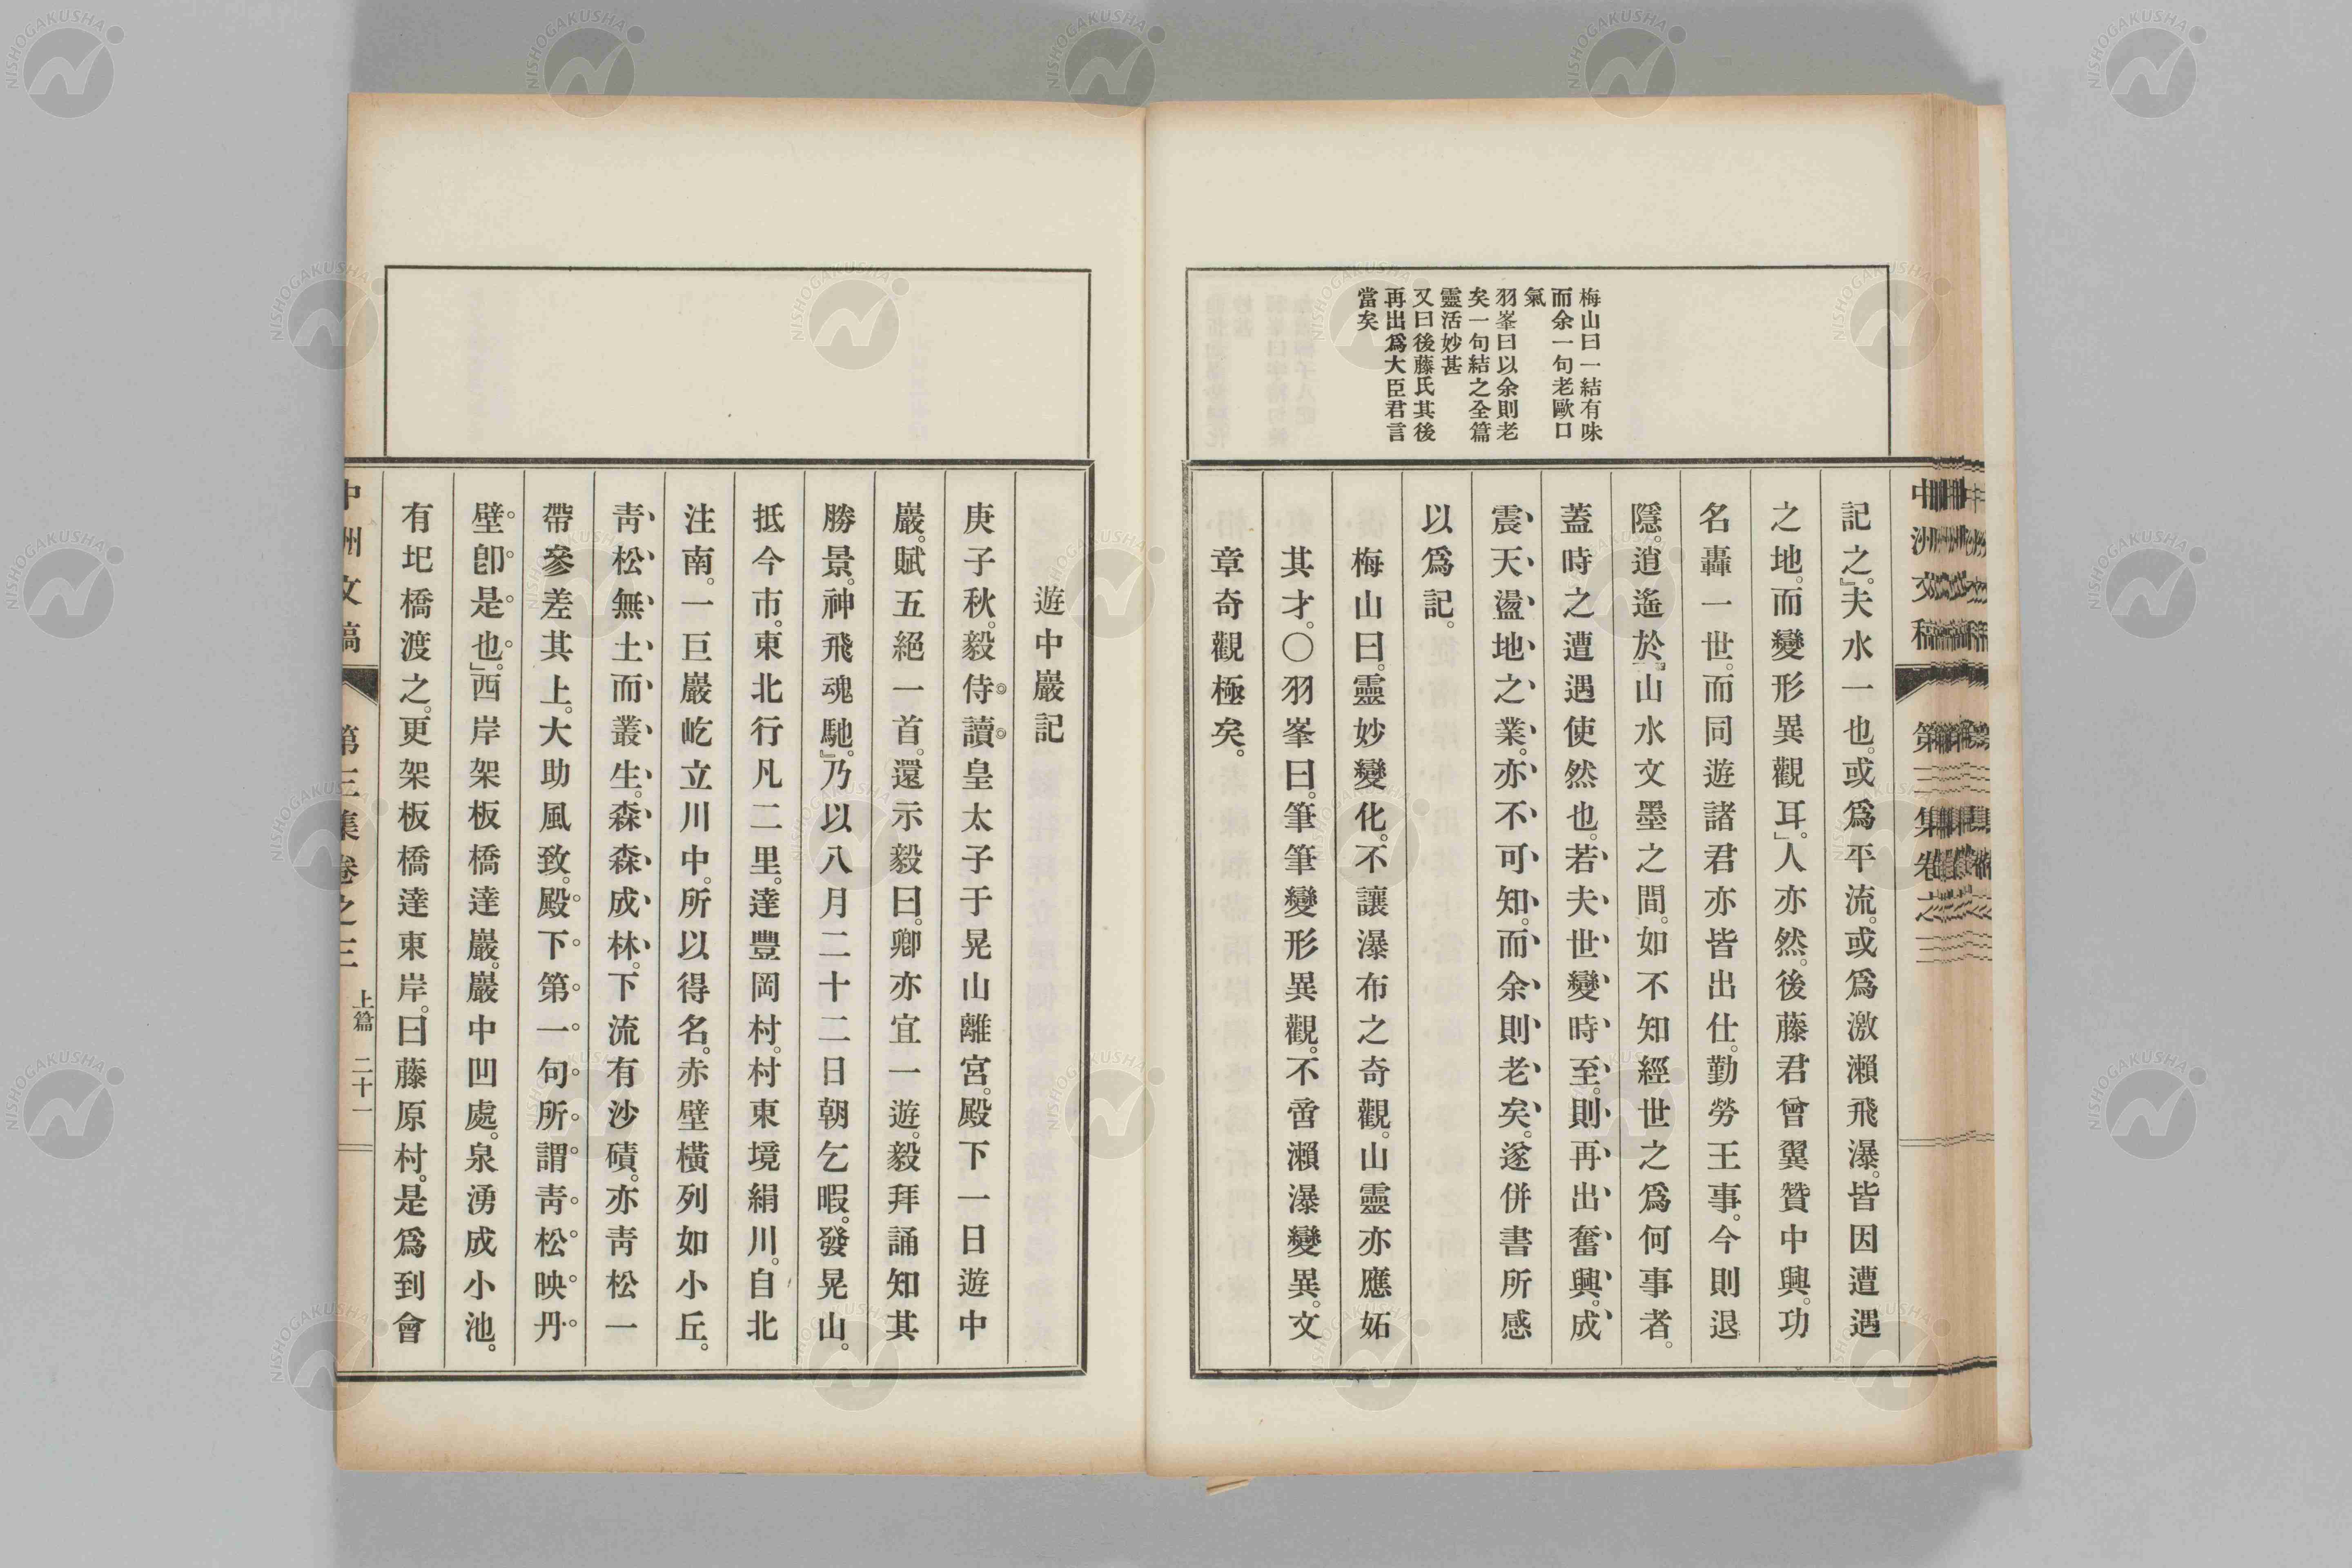 梅山曰一結有味
而余一句老歐口
氣
羽峯曰以余則老
矣一句結之全篇
靈活妙甚
又曰後藤氏其後
再出爲大臣君言
當矣
記之。』夫水一也。或爲平流。或爲激瀨飛瀑。皆因遭遇
之地。而變形異觀耳。』人亦然。後藤君曾翼贊中興。功
名轟一世。而同遊諸君亦皆出仕。勤勞王事。今則退
隱。逍遙於『山水文墨之間。如不知經世之爲何事者。
蓋時之遭遇使然也。若夫世變時至。則再出奮興。成
震天盪地之業。亦不可知。而余則老矣。遂併書所感
以爲記。
梅山曰。靈妙變化。不讓瀑布之奇觀。山靈亦應妬
其才。〇羽峯曰。筆筆變形異觀。不啻瀨瀑變異。文
章奇觀極矣。
中洲文稿 第三集卷之三
遊中巖記
庚子秋。毅侍讀皇太子于晃山離宮。殿下一日遊中
巖。賦五絕一首。還示毅曰。卿亦宜一遊。毅拜誦知其
勝景。神飛魂馳。』乃以八月二十二日朝乞暇。發晃山。
抵今市。東北行凡二里。達豐岡村。村東境絹川。自北
注南。一巨巖屹立川中。所以得名。赤壁橫列如小丘。
靑松無土而叢生。森森成林。下流有沙磧。亦靑松一
帶參差其上。大助風致。殿下第一句所謂靑松映丹
壁卽是也。』西岸架板橋達巖。巖中凹處。泉湧成小池。
有圯橋渡之。更架板橋達東岸。曰藤原村。是爲到會
中洲文稿 第三集卷之三 上篇 二十一
NISHOGAKUSHA